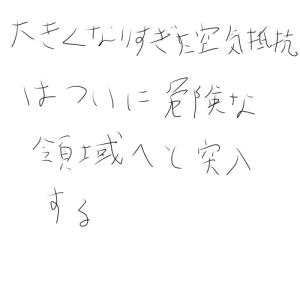 大きくなりすぎた空気抵抗
はついに危険な
領域へと突入
する